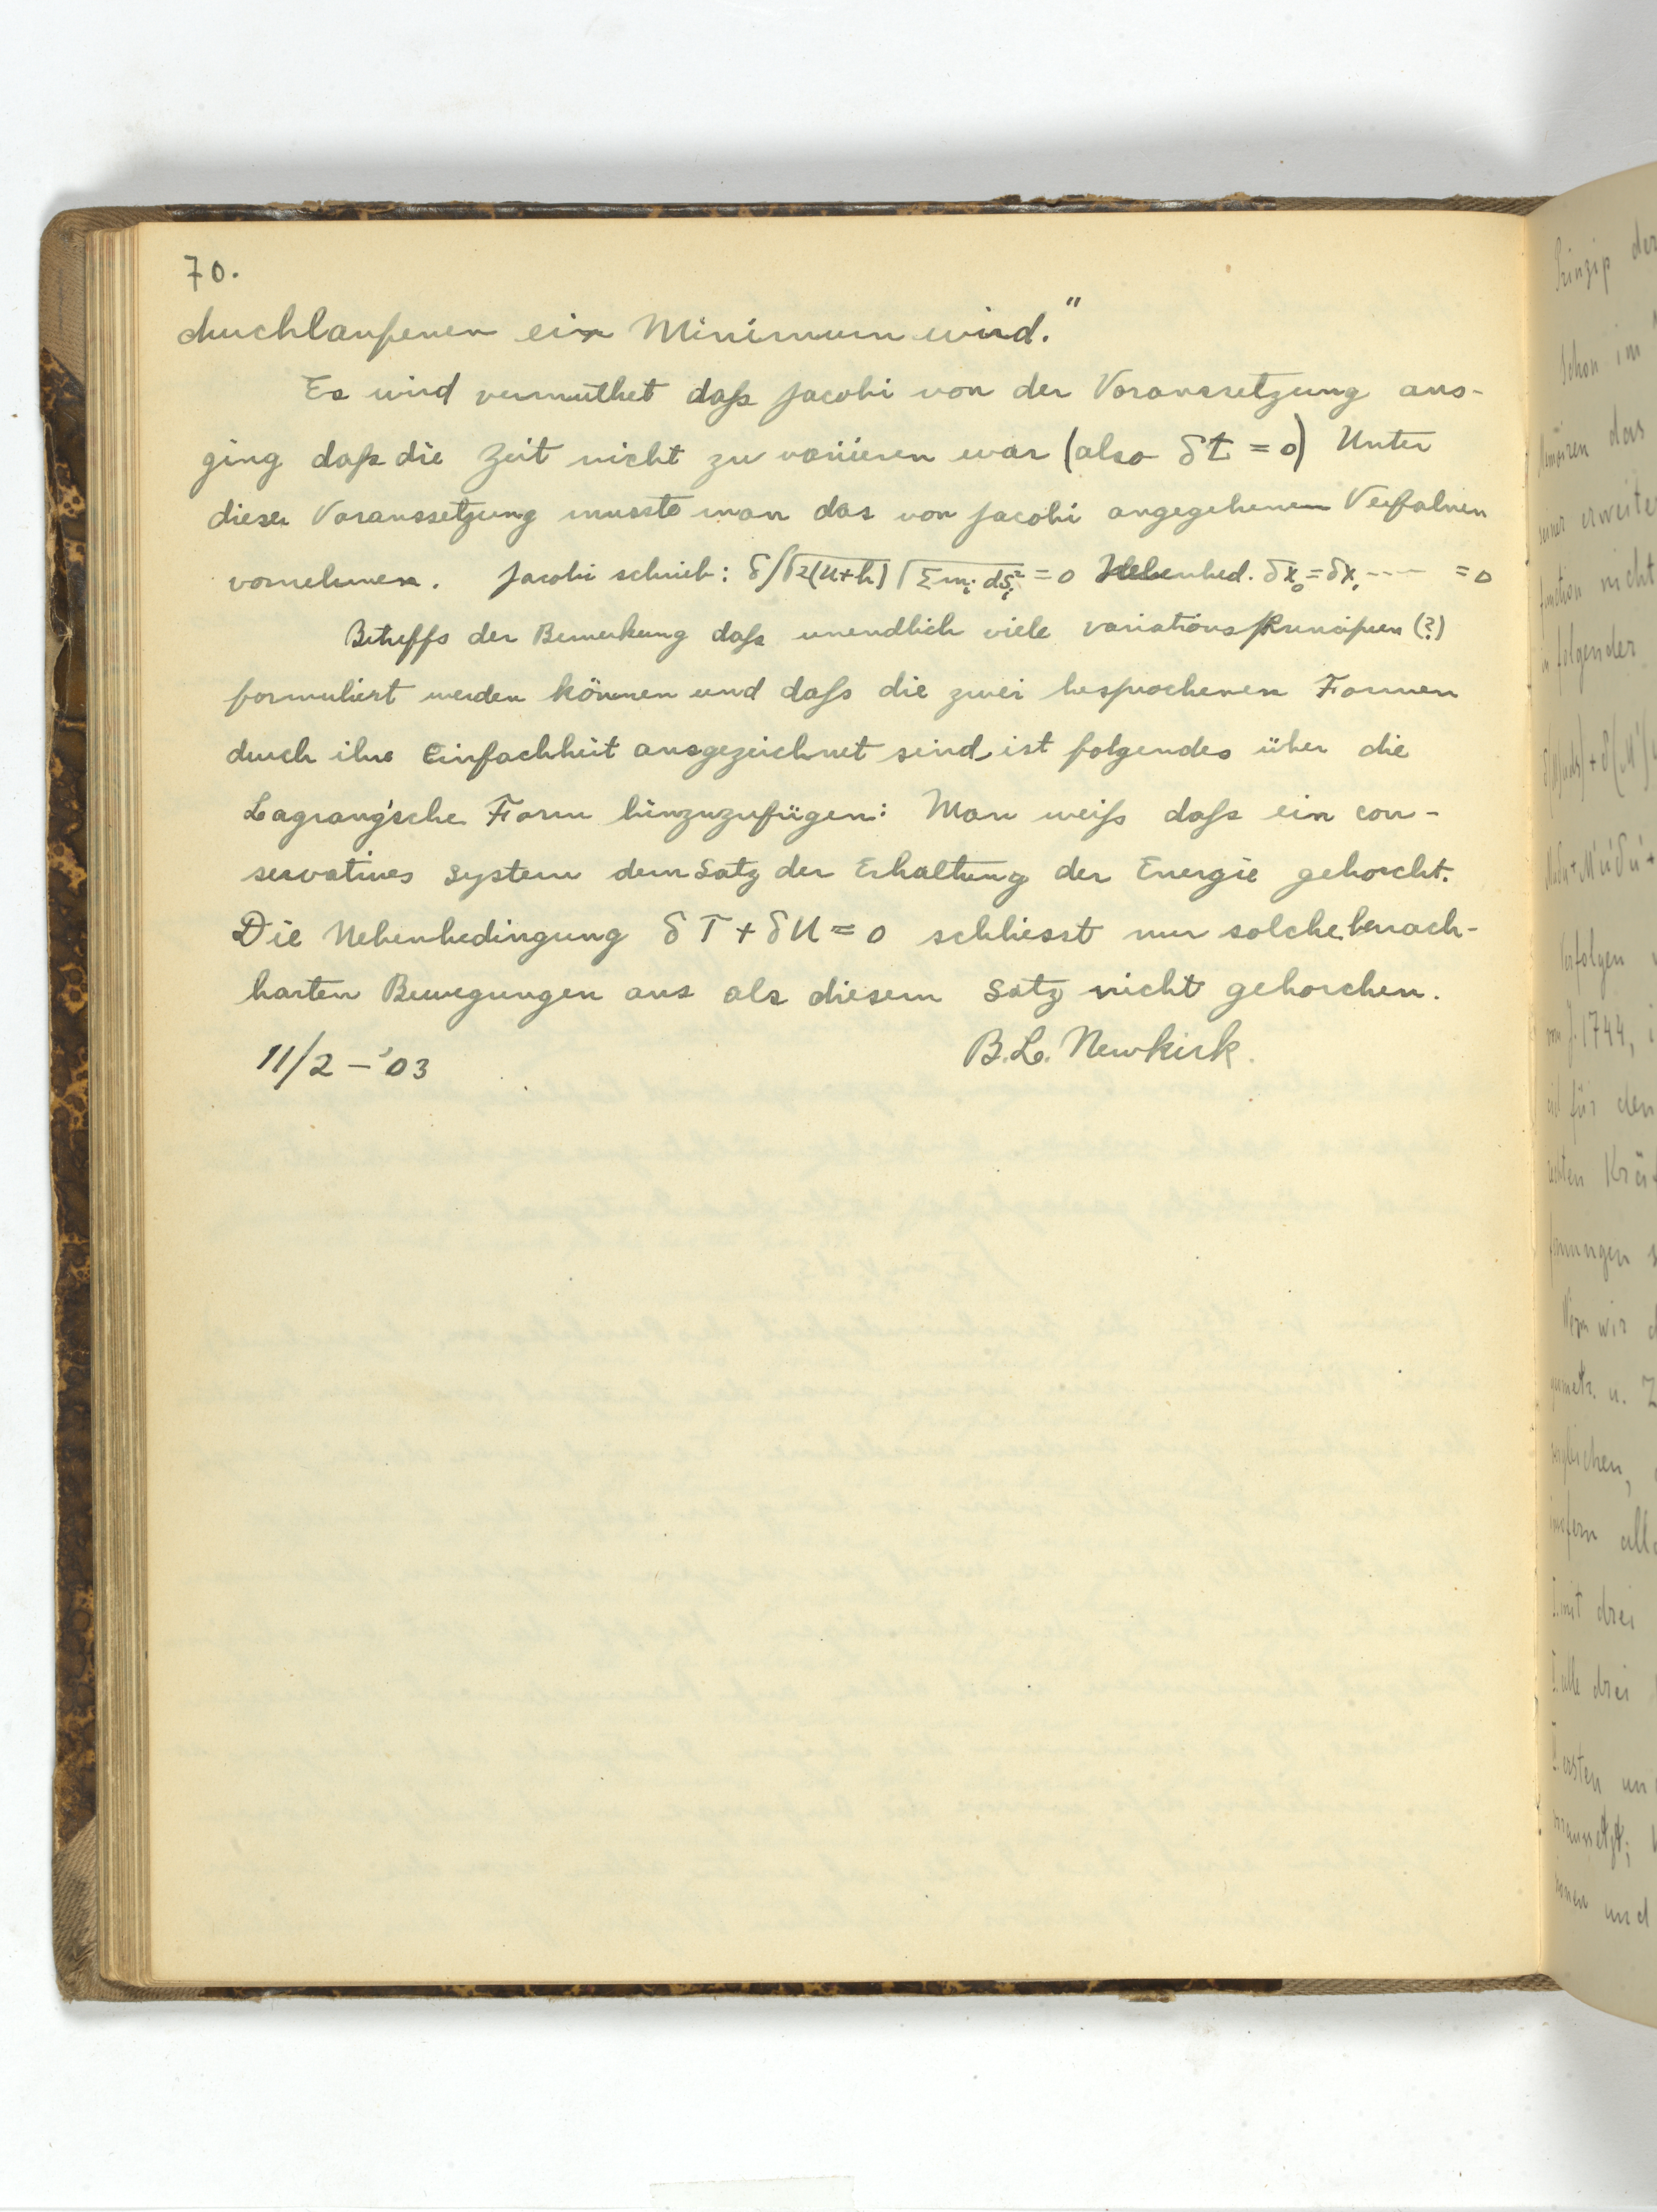 70.
duchlaufenen ein Minimum wird."
Es wird vermuthet daß Jacobi von der Voraussetzung aus-
ging daß die Zeit nicht zu variieren war (also δt = 0) Unter
dieser Voraussetzung musste man das von Jacobi angegebenen Verfahren
vornehmen. Jacobi schrieb: δ∫√2(U+h) √Σmᵢ dsᵢ² = 0 Nebenbed. δx₀ = δx₁ ---- = 0
Betreffs der Bemerkung daß unendlich viele variationsprincipien (?)
formuliert werden können und daß die zwei besprochenen Formen
durch ihre Einfachheit ausgezeichnet sind, ist folgendes über die
Lagrang'sche Form hinzuzufügen: Man weiß daß ein con-
servatives System dem Satz der Erhaltung der Energie gehorcht.
Die Nebenbedingung δT + δU = 0 schliesst nur solche benach-
barten Bewegungen aus als diesem Satz nicht gehorchen.
11/2 – '03 B.L. Newkirk.
Prinzip der
Schon im
das
seiner erweiter
function nicht
in folgender
Verfolgen
vom J. 1744,
für den
Kräf
Wenn wir
geometr. u. Z
all
mit drei
alle drei
ersten un
voraussetzt;
und